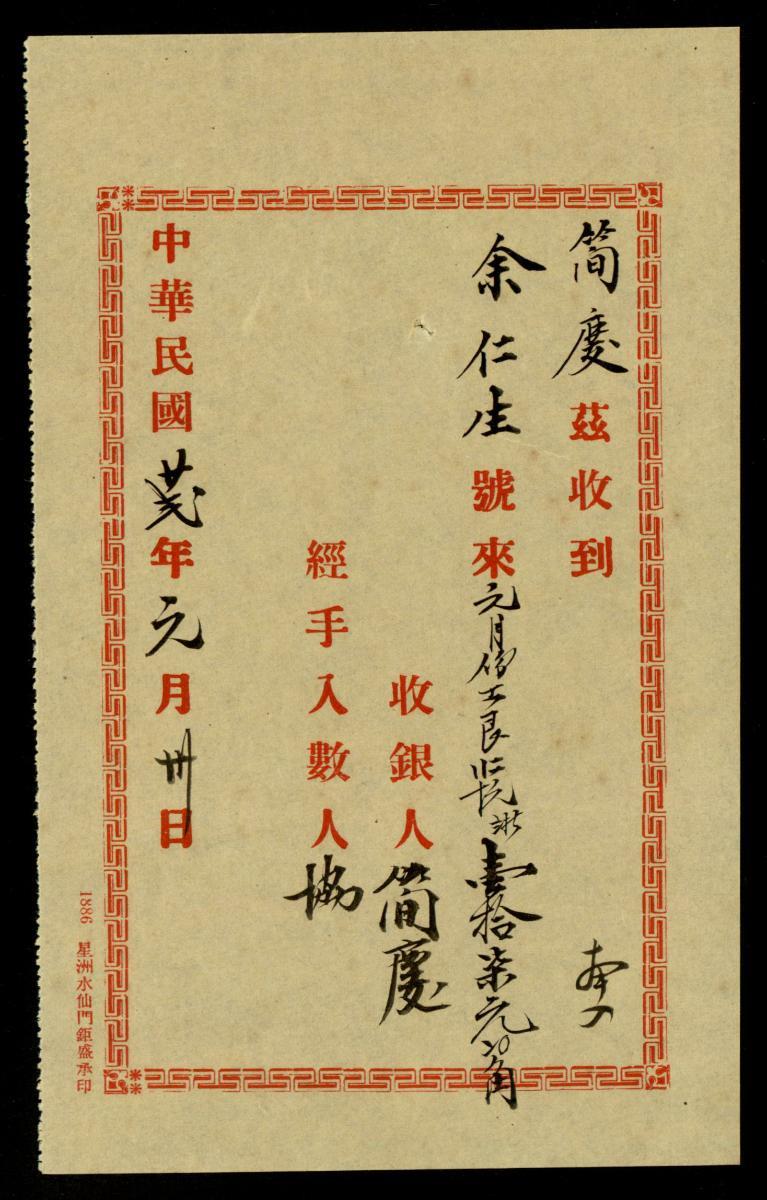 简慶茲收到
余仁生號來元月份工艮 壹拾柒元 角
收銀人简慶
經手入數人協
中華民國 年元月卅日
1886 星洲水仙門鉅盛承印